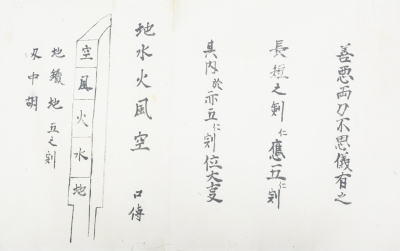 善悪両刀不思儀有之
長短之剣仁應五仁剣
其内於亦五仁剣位大支
地水火風空
口傳
空
風
火
水
地
地鑚地五之剣
刄中胡